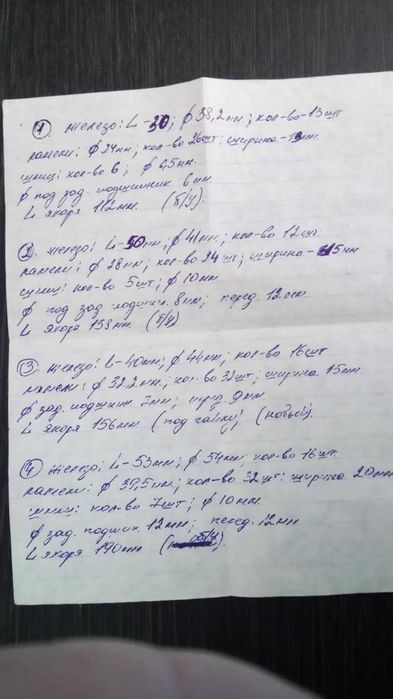 ① железо: L-30; ф 38,2мм; кол-во-13шт
ламели: ф 24мм; кол-во 26шт; ширина- мм.
шлиц: кол-во 6; ф 6,5мм.
ф под зад. подшипник 6мм.
L якоря 112мм. (б/у).
② железо: L-50мм; ф 41мм; кол-во 12шт.
ламели: ф 28мм; кол-во 24шт; ширина-15мм
шлиц: кол-во 5шт; ф 10мм
ф под зад. подшип. 8мм; перед. 12мм.
L якоря 158мм. (б/у)
③ железо: L-40мм; ф 44мм; кол-во 16шт
ламели: ф 32.2мм; кол-во 32шт; ширина 15мм.
ф зад. подшип. 7мм; перед. 9мм
L якоря 156мм (под гайку) (новый).
④ железо: L-53мм; ф 54мм; кол-во 16шт.
ламели: ф 39,5мм; кол-во 32шт; ширина 20мм
шлиц: кол-во 7шт; ф 10мм.
ф зад. подшип. 12мм; перед. 12мм
L якоря 190мм (б/у).